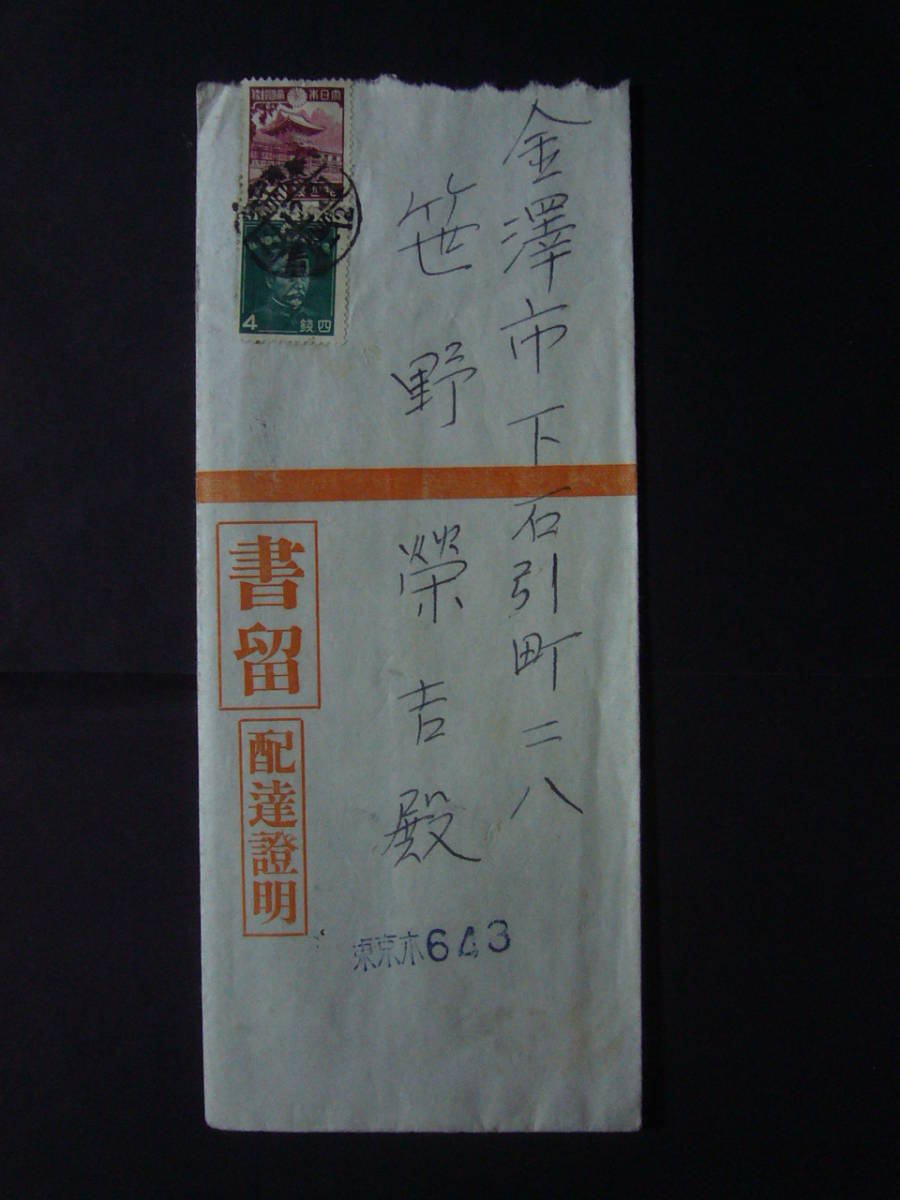 金澤市下石引町二八
笹野榮吉殿
大日本帝國郵便
4 四錢
書留
配達證明
東京木643